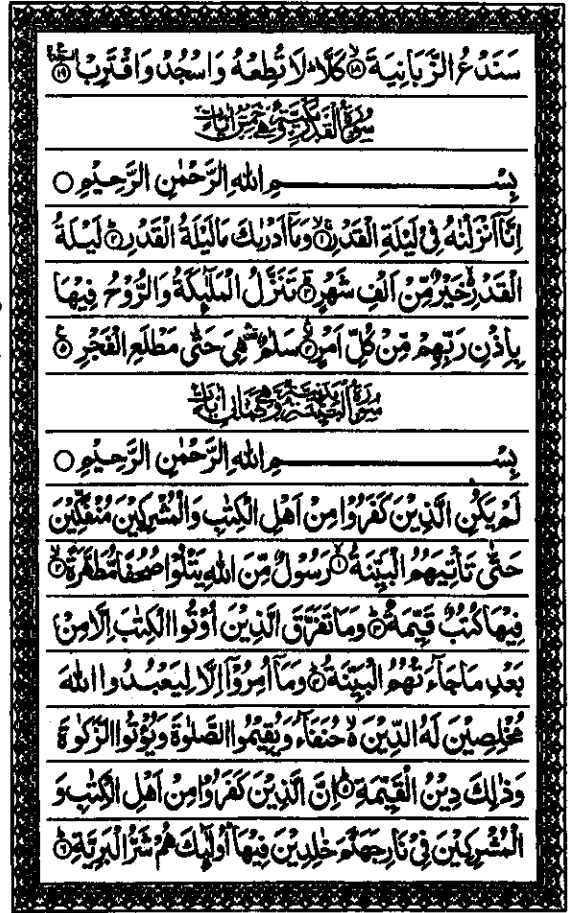 سَنَدْعُ الزَّبَانِيَةَ ۙ‏﴿۱۸﴾ كَلَّا ؕ لَا تُطِعْهُ وَاسْجُدْ وَاقْتَرِبْ ﴿۱۹﴾
سُوْرَةُ الْقَدْرِ مَكِّيَّةٌ وَّهِيَ خَمْسُ اٰيَاتٍ
بِسْمِ اللهِ الرَّحْمٰنِ الرَّحِيْمِ ○
اِنَّاۤ اَنْزَلْنٰهُ فِيْ لَيْلَةِ الْقَدْرِ ﴿۱﴾ وَمَاۤ اَدْرٰىكَ مَا لَيْلَةُ الْقَدْرِ ﴿۲﴾ لَيْلَةُ
الْقَدْرِ خَيْرٌ مِّنْ اَلْفِ شَهْرٍ ﴿۳﴾ تَنَزَّلُ الْمَلٰٓئِكَةُ وَالرُّوْحُ فِيْهَا
بِاِذْنِ رَبِّهِمْ مِّنْ كُلِّ اَمْرٍ ﴿۴﴾ سَلٰمٌ هِيَ حَتّٰى مَطْلَعِ الْفَجْرِ ﴿۵﴾
سُوْرَةُ الْبَيِّنَةِ مَدَنِيَّةٌ وَّهِيَ ثَمَانُ اٰيَاتٍ
بِسْمِ اللهِ الرَّحْمٰنِ الرَّحِيْمِ ○
لَمْ يَكُنِ الَّذِيْنَ كَفَرُوْا مِنْ اَهْلِ الْكِتٰبِ وَالْمُشْرِكِيْنَ مُنْفَكِّيْنَ
حَتّٰى تَاْتِيَهُمُ الْبَيِّنَةُ ﴿۱﴾ رَسُوْلٌ مِّنَ اللهِ يَتْلُوْا صُحُفًا مُّطَهَّرَةً ﴿۲﴾
فِيْهَا كُتُبٌ قَيِّمَةٌ ﴿۳﴾ وَمَا تَفَرَّقَ الَّذِيْنَ اُوْتُوا الْكِتٰبَ اِلَّا مِنْۢ
بَعْدِ مَا جَآءَتْهُمُ الْبَيِّنَةُ ﴿۴﴾ وَمَاۤ اُمِرُوْۤا اِلَّا لِيَعْبُدُوا اللهَ
مُخْلِصِيْنَ لَهُ الدِّيْنَ ۙ حُنَفَآءَ وَيُقِيْمُوا الصَّلٰوةَ وَيُؤْتُوا الزَّكٰوةَ
وَذٰلِكَ دِيْنُ الْقَيِّمَةِ ﴿۵﴾ اِنَّ الَّذِيْنَ كَفَرُوْا مِنْ اَهْلِ الْكِتٰبِ وَ
الْمُشْرِكِيْنَ فِيْ نَارِ جَهَنَّمَ خٰلِدِيْنَ فِيْهَا ؕ اُولٰٓئِكَ هُمْ شَرُّ الْبَرِيَّةِ ﴿۶﴾